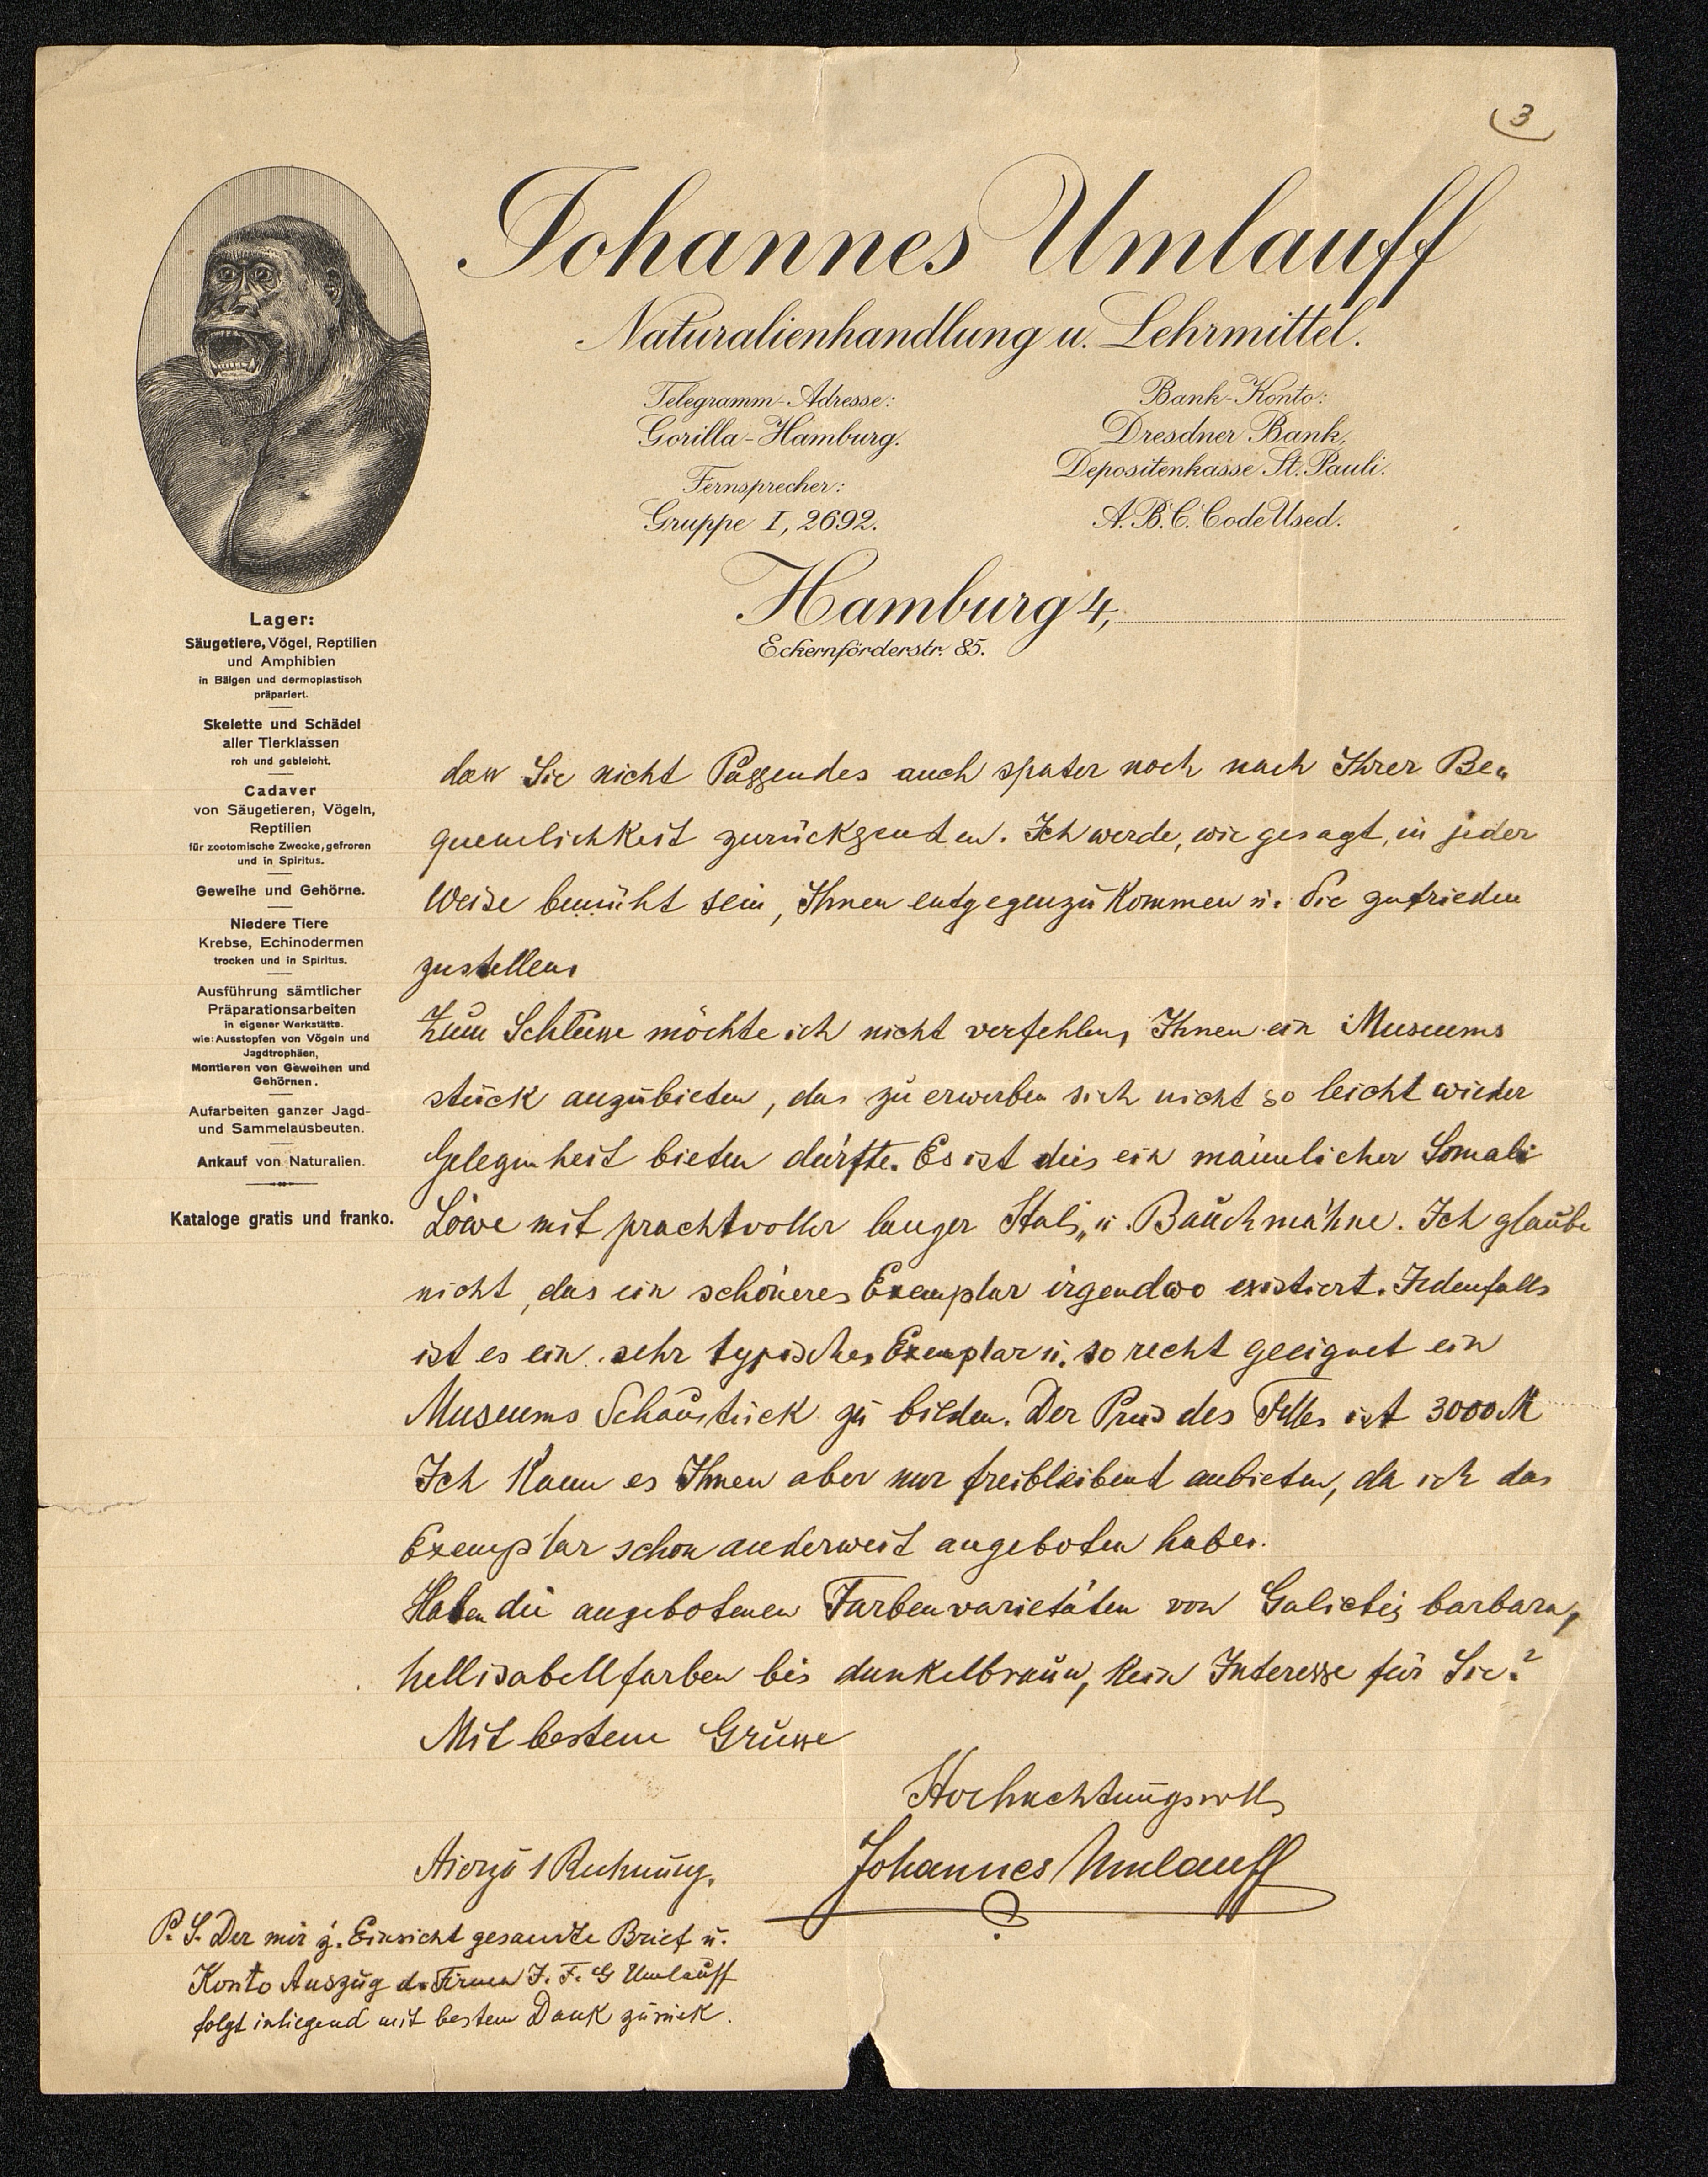 3
Johannes Umlauff
Naturalienhandlung u. Lehrmittel.
Telegramm-Adresse:
Gorilla-Hamburg.
Fernsprecher:
Gruppe I, 2692.
Bank-Konto:
Dresdner Bank,
Depositenkasse St. Pauli.
A.B.C. Code Used.
Hamburg 4,
Eckernförderstr. 85.
Lager:
Säugetiere, Vögel, Reptilien
und Amphibien
in Bälgen und dermoplastisch
präpariert.
Skelette und Schädel
aller Tierklassen
roh und gebleicht.
Cadaver
von Säugetieren, Vögeln,
Reptilien
für zootomische Zwecke, gefroren
und in Spiritus.
Geweihe und Gehörne.
Niedere Tiere
Krebse, Echinodermen
trocken und in Spiritus.
Ausführung sämtlicher
Präparationsarbeiten
in eigener Werkstätte.
wie: Ausstopfen von Vögeln und
Jagdtrophäen,
Montieren von Geweihen und
Gehörnen.
Aufarbeiten ganzer Jagd-
und Sammelausbeuten.
Ankauf von Naturalien.
Kataloge gratis und franko.
Sie nicht Passendes auch später noch nach Ihrer Be-
quemlichkeit zurücksenden. Ich werde, wie gesagt, in jeder
Weise bemüht sein, Ihnen entgegenzukommen u. Sie zufrieden
zustellen.
Zum Schlusse möchte ich nicht verfehlen, Ihnen ein Museums
stück anzubieten, das zu erwerben sich nicht so leicht wieder
Gelegenheit bieten dürfte. Es ist dies ein männlicher Somali
Löwe mit prachtvoller langer Hals- u. Bauchmähne. Ich glaube
nicht, das ein schöneres Exemplar irgendwo existiert. Jedenfalls
ist es ein sehr typisches Exemplar u. so recht geeignet ein
Museums Schaustück zu bilden. Der Preis des Felles ist 3000 M
Ich kann es Ihnen aber nur freibleibend anbieten, da ich das
Exemplar schon anderweit angeboten habe.
Haben die angebotenen Farbenvarietäten von Galictis barbara,
hellisabellfarben bis dunkelbraun, kein Interesse für Sie?
Mit bestem Grusse
Hochachtungsvoll
Johannes Umlauff
Hierzu 1 Rechnung.
P. S. Der mir z. Einsicht gesandte Brief u.
Konto Auszug d. Firma J. F. G Umlauff
folgt inliegend mit bestem Dank zurück.